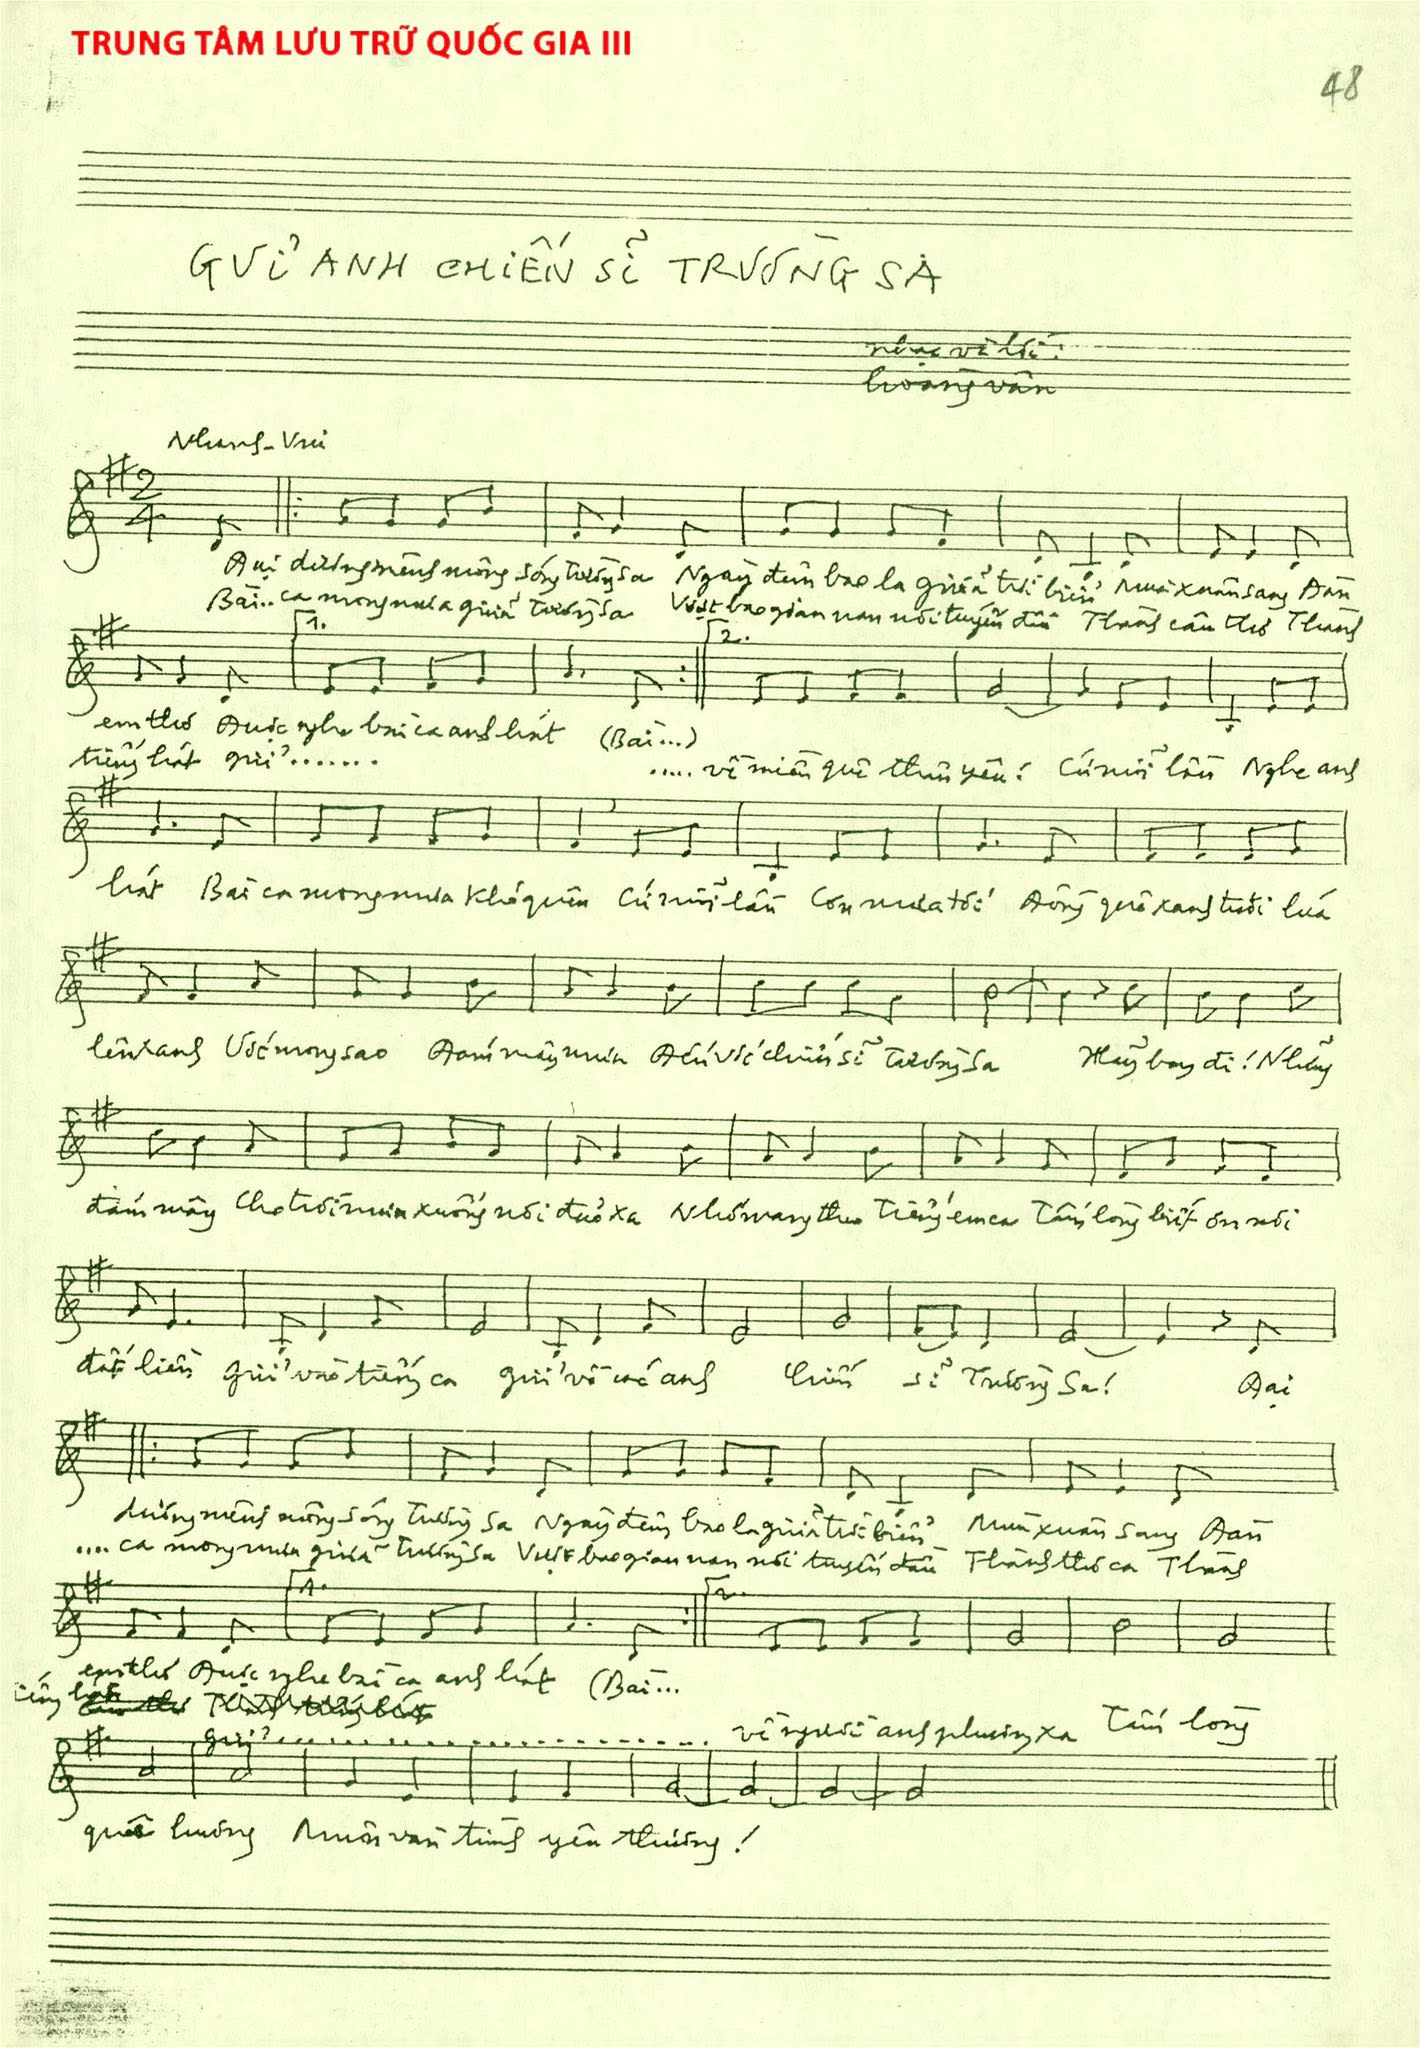 TRUNG TÂM LƯU TRỮ QUỐC GIA III
48
GỬI ANH CHIẾN SĨ TRƯỜNG SA
nhạc và lời:
hoàng vân
Nhanh - Vui
2
4
Đại dương mênh mông sóng Trường Sa Ngày đêm bao la giữa trời biển Mùa xuân sang Đàn
Bài.. ca mong mưa giữa Trường Sa Vượt bao gian nan nơi tuyến đầu Thành câu thơ Thành
1.
2.
em thơ Được nghe bài ca anh hát (Bài...)
tiếng hát gửi.......
..... về miền quê thân yêu! Cứ mỗi lần Nghe anh
hát Bài ca mong mưa khó quên Cứ mỗi lần Cơn mưa tới Đồng quê xanh tươi lúa
lên xanh Ước mong sao Đám mây mưa Đến với chiến sĩ Trường Sa Hãy bay đi! Những
đám mây Cho trời mưa xuống nơi đảo xa Nhớ mang theo Tiếng em ca Tấm lòng biết ơn nơi
đất liền Gửi vào tiếng ca gửi về các anh Chiến sĩ Trường Sa! Đại
dương mênh mông sóng Trường Sa Ngày đêm bao la giữa trời biển Mùa xuân sang Đàn
.... ca mong mưa giữa Trường Sa Vượt bao gian nan nơi tuyến đầu Thành thơ ca Thành
1.
2.
em thơ Được nghe bài ca anh hát (Bài...
tiếng hát
gửi
về người anh phương xa Tấm lòng
quê hương Muôn vàn tình yêu thương!